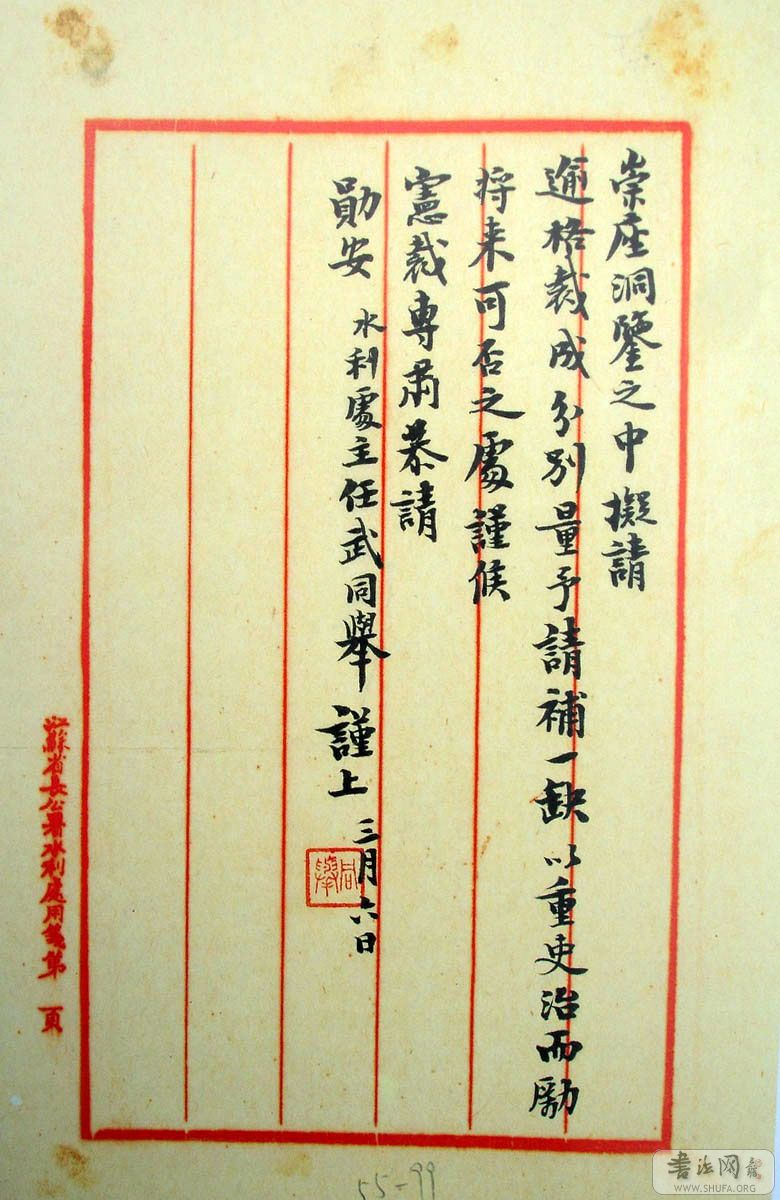 崇座洞鑒之中擬請
逾格裁成分别量予請補一缺以重吏治而勵
将来可否之處謹候
憲裁專肅恭請
勛安
水利處主任武同舉謹上 三月六日
同舉
江蘇省長公署水利處用箋第 頁
55-99
書法网
WWW.SHUFA.ORG